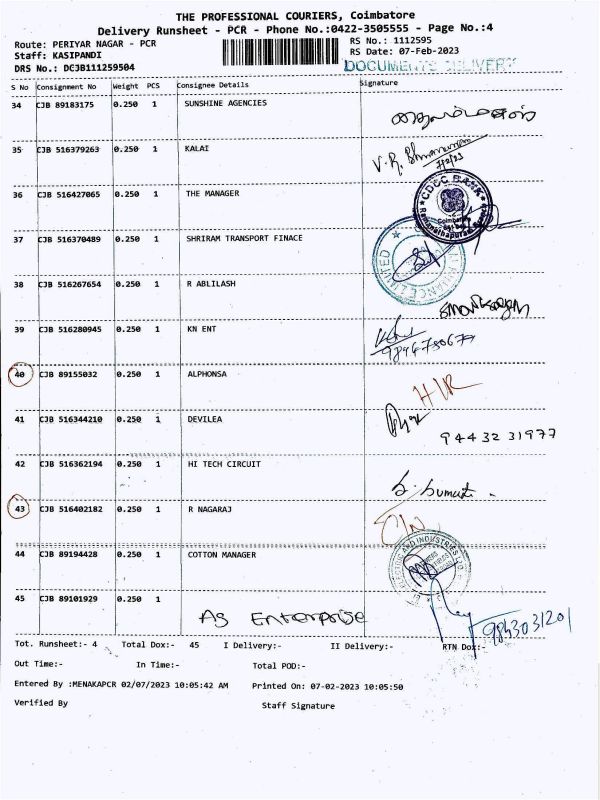 THE PROFESSIONAL COURIERS, Coimbatore
Delivery Runsheet - PCR - Phone No.:0422-3505555 - Page No.:4
Route: PERIYAR NAGAR - PCR RS No.: 1112595
Staff: KASIPANDI RS Date: 07-Feb-2023
DRS No.: DCJB111259504 DOCUMENTS DELIVERY
S No Consignment No Weight PCS Consignee Details Signature
34 CJB 89183175 0.250 1 SUNSHINE AGENCIES
35 CJB 516379263 0.250 1 KALAI
36 CJB 516427065 0.250 1 THE MANAGER
CDCC BANK
37 CJB 516370489 0.250 1 SHRIRAM TRANSPORT FINACE
38 CJB 516267654 0.250 1 R ABLILASH
39 CJB 516280945 0.250 1 KN ENT
9894730677
40 CJB 89155032 0.250 1 ALPHONSA
41 CJB 516344210 0.250 1 DEVILEA
94432 31977
42 CJB 516362194 0.250 1 HI TECH CIRCUIT
43 CJB 516402182 0.250 1 R NAGARAJ
44 CJB 89194428 0.250 1 COTTON MANAGER
45 CJB 89101929 0.250 1
AS Enterprise
9843031201
Tot. Runsheet:- 4 Total Dox:- 45 I Delivery:- II Delivery:- RTN Dox:-
Out Time:- In Time:- Total POD:-
Entered By :MENAKAPCR 02/07/2023 10:05:42 AM Printed On: 07-02-2023 10:05:50
Verified By Staff Signature